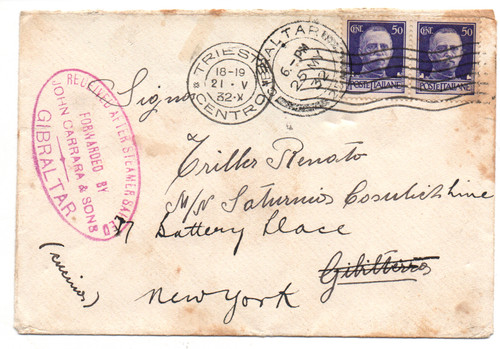 CENT. 50
50
POSTE ITALIANE
POSTE ITALIANE
TRIESTE
18-19
21·V
32·X
CENTRO
GIBRALTAR
6-PM
25 MY
32
RECEIVED AFTER STEAMER SAILED
FORWARDED BY
JOHN CARRARA & SONS
GIBRALTAR
Signor
Triller Renato
M/N Saturnia Cosulich Line
17 Battery Place
Gibilterra
(cucina)
New York